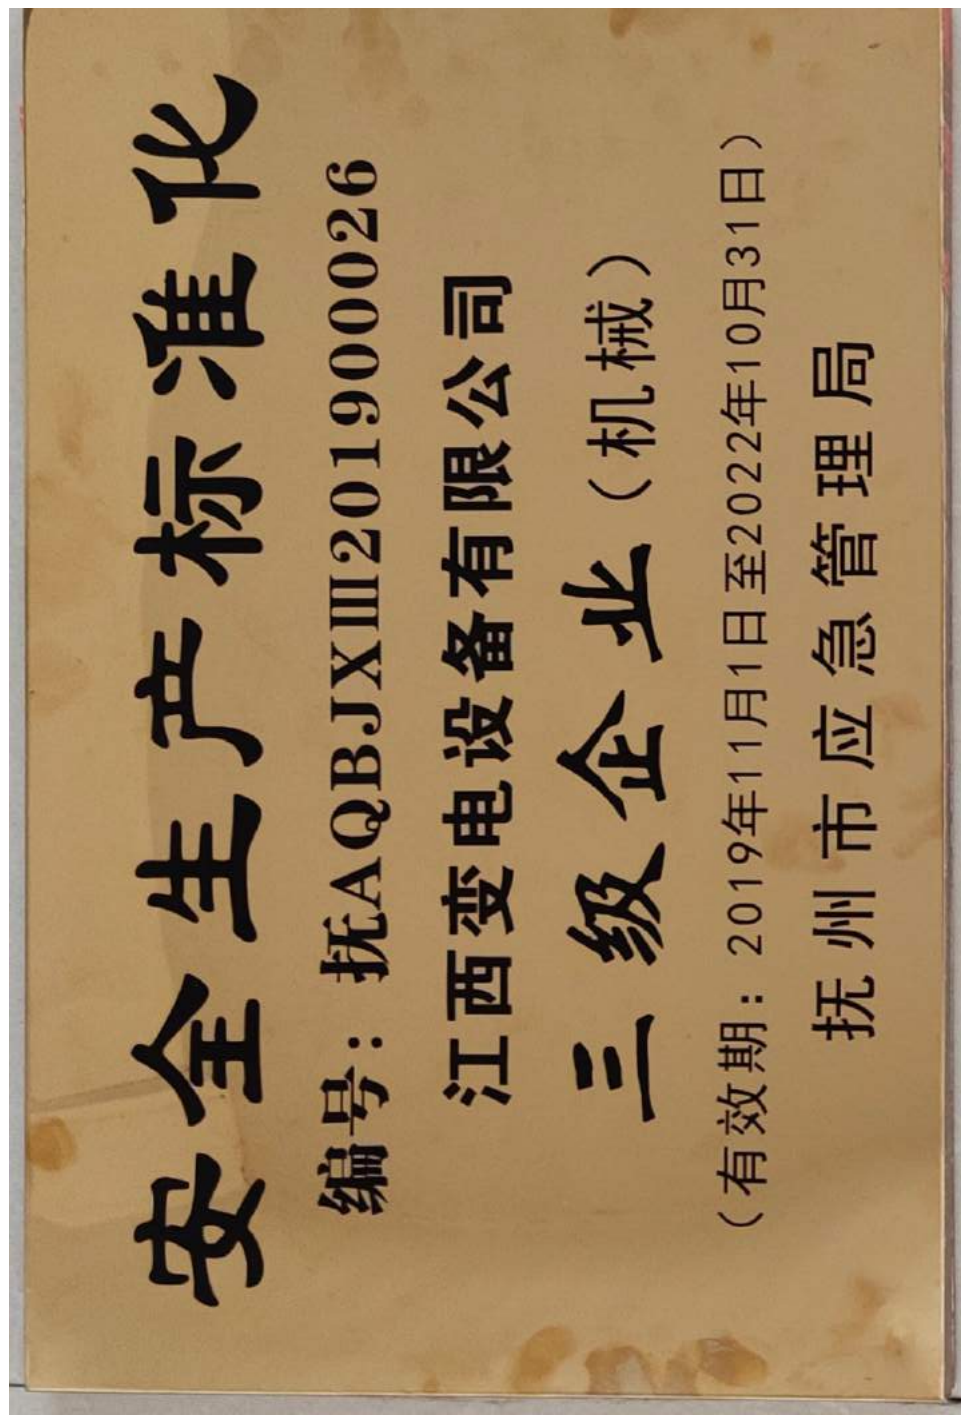 安全生产标准化
编号：抚AQBJXⅢ201900026
江西变电设备有限公司
三级企业（机械）
（有效期：2019年11月1日至2022年10月31日）
抚州市应急管理局